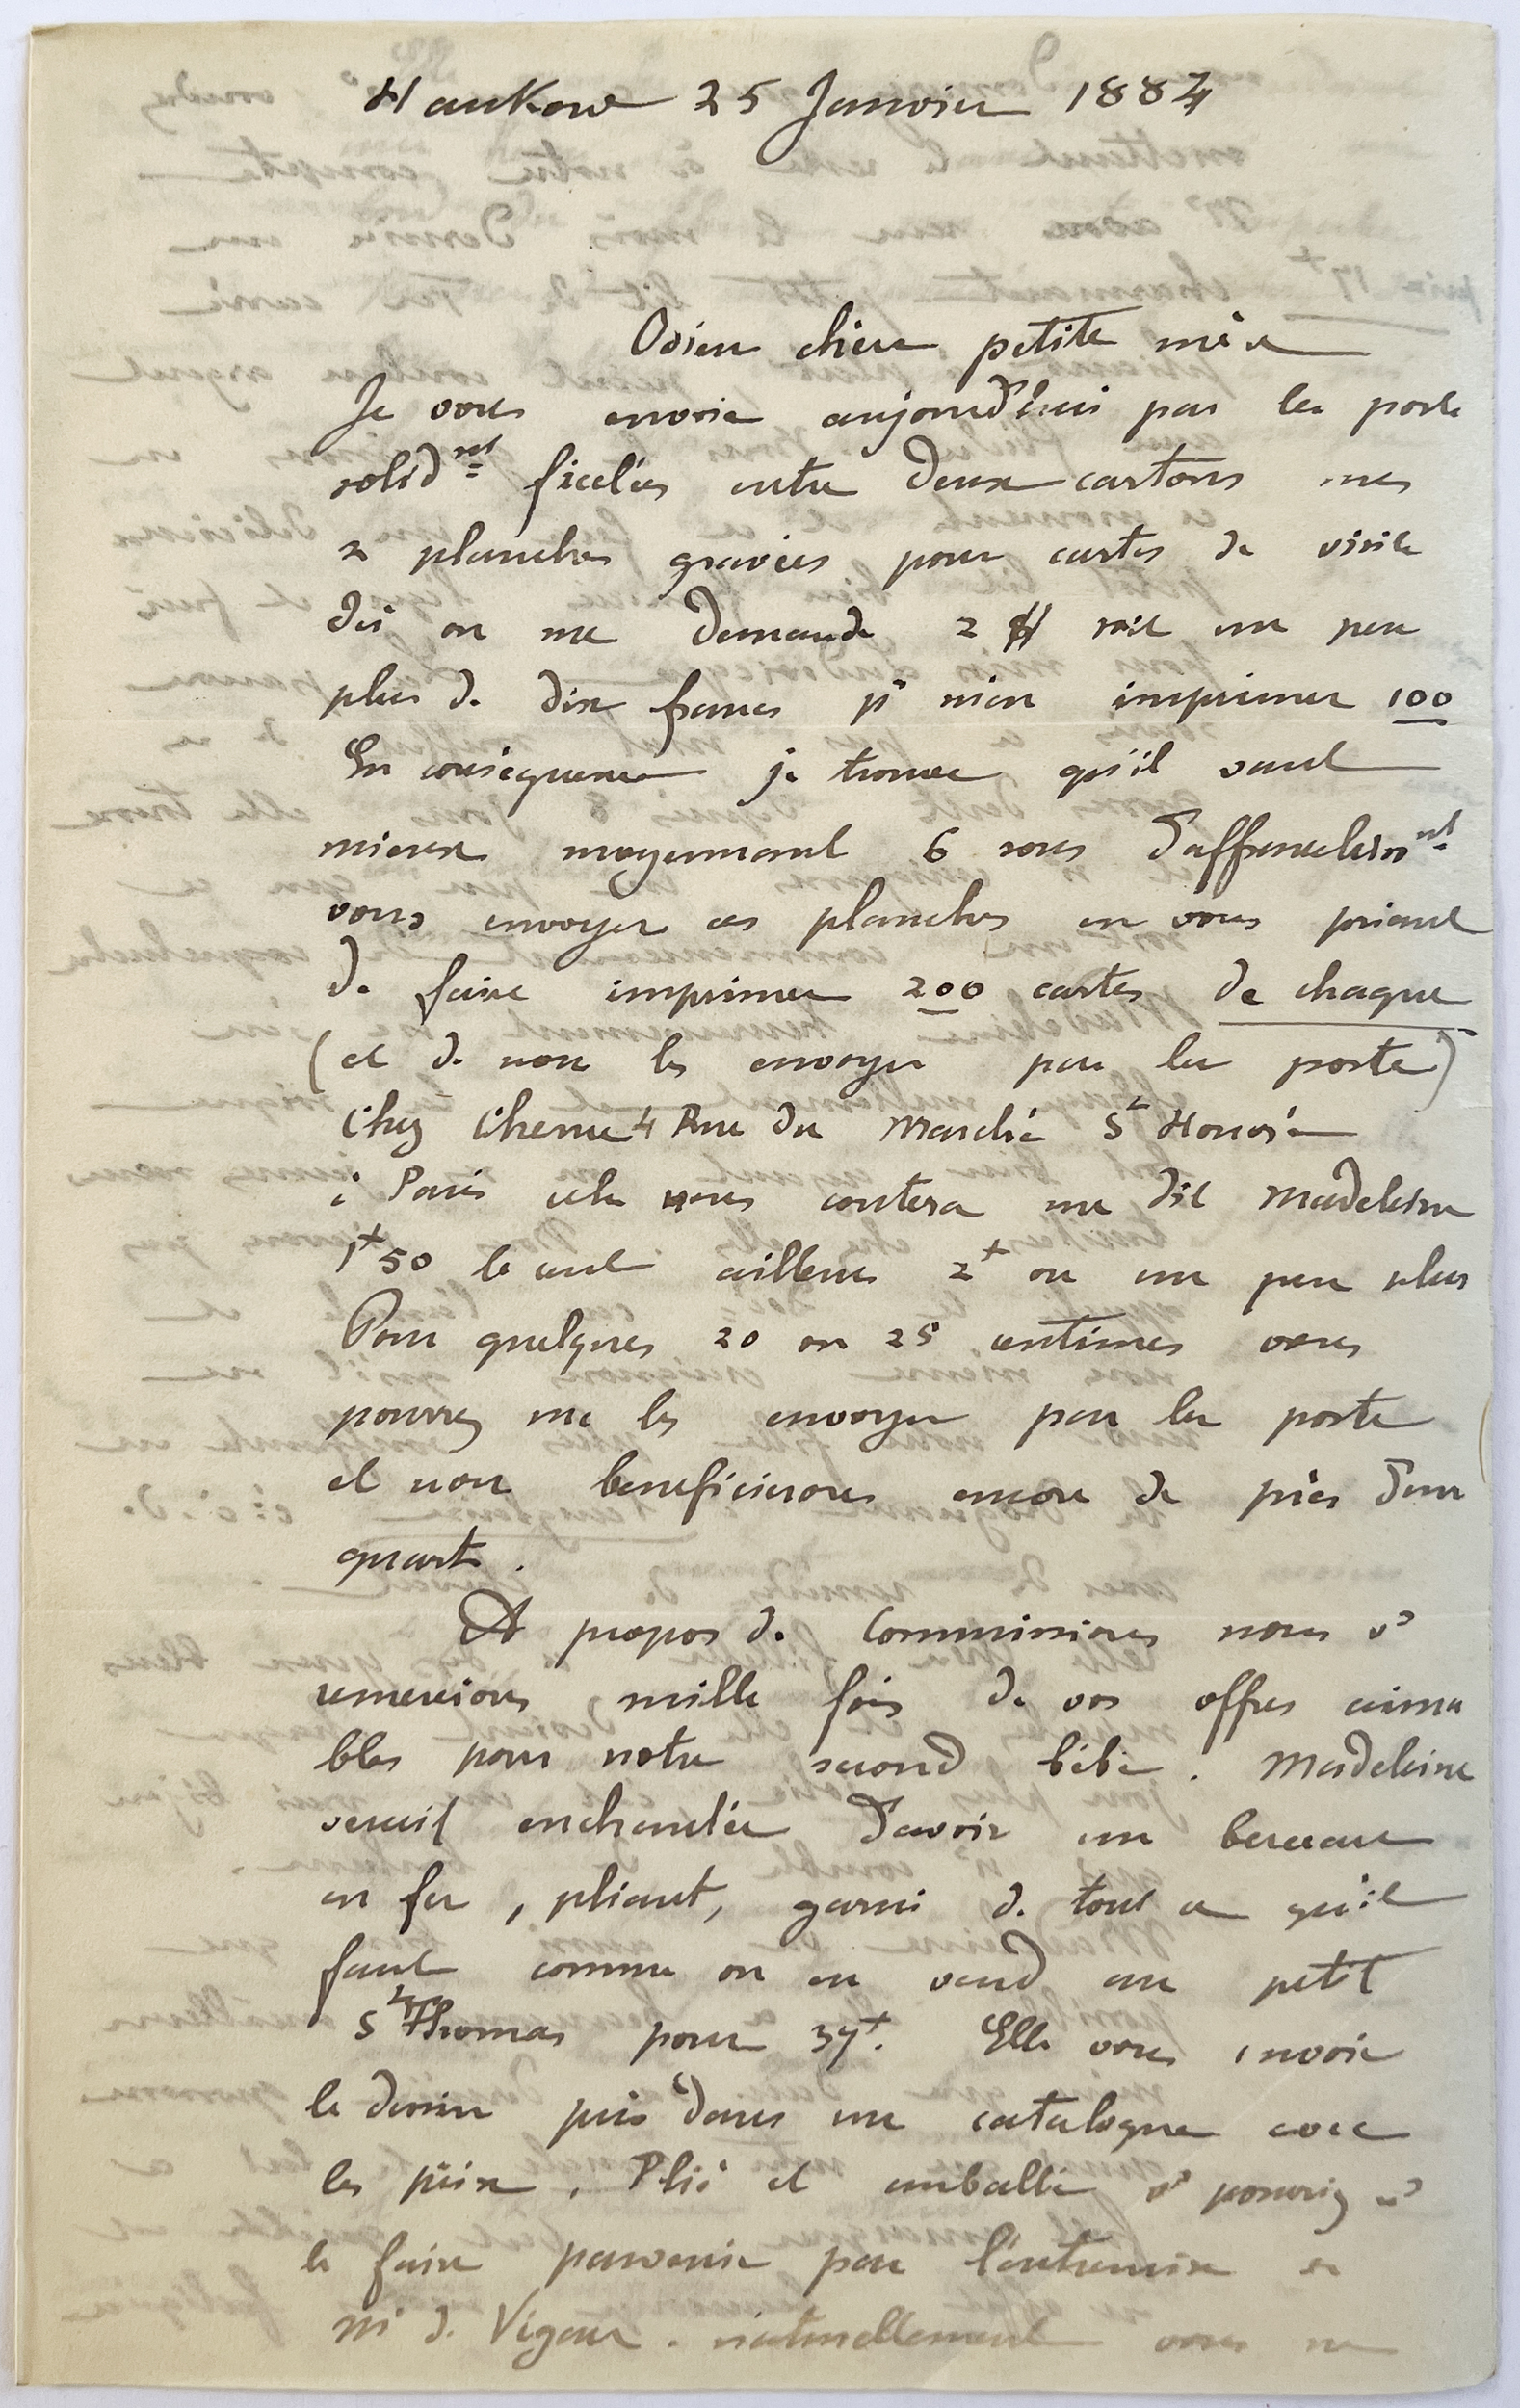 Hankow 25 Janvier 1884
bien chère petite mère
Je vous envoie aujourd'hui par la poste
solid.nt ficelées entre deux cartons mes
2 planches gravées pour cartes de visite
Ici on me demande 2 $ soit un peu
plus de dix francs pr m'en imprimer 100
En conséquence je trouve qu'il vaut
mieux moyennant 6 sous d'affranchissnt
vous envoyer ces planches en vous priant
de faire imprimer 200 cartes de chaque
(et de nous les envoyer par la poste)
Chez 4 Rue du Marché St Honoré
à Paris cela vous coutera me dit Madeleine
1f 50 le cent ailleurs 2f ou un peu plus
Pour quelques 20 ou 25 centimes vous
pourrez me les envoyer par la poste
et nous beneficierons encore de près d'un
quart.
A propos de Commissions nous vs
remercions mille fois de vos offres aima
bles pour notre second bébé. Madeleine
serait enchantée d'avoir un berceau
en fer, pliant, garni de tout ce qu'il
faut comme on en vend au petit
St Thomas pour 37f. Elle vous envoie
le dessin pris dans un catalogue avec
les prix. Plié et emballé vs pourriez ns
le faire parvenir par l'entremise de
M. de Vigan. naturellement vous ne